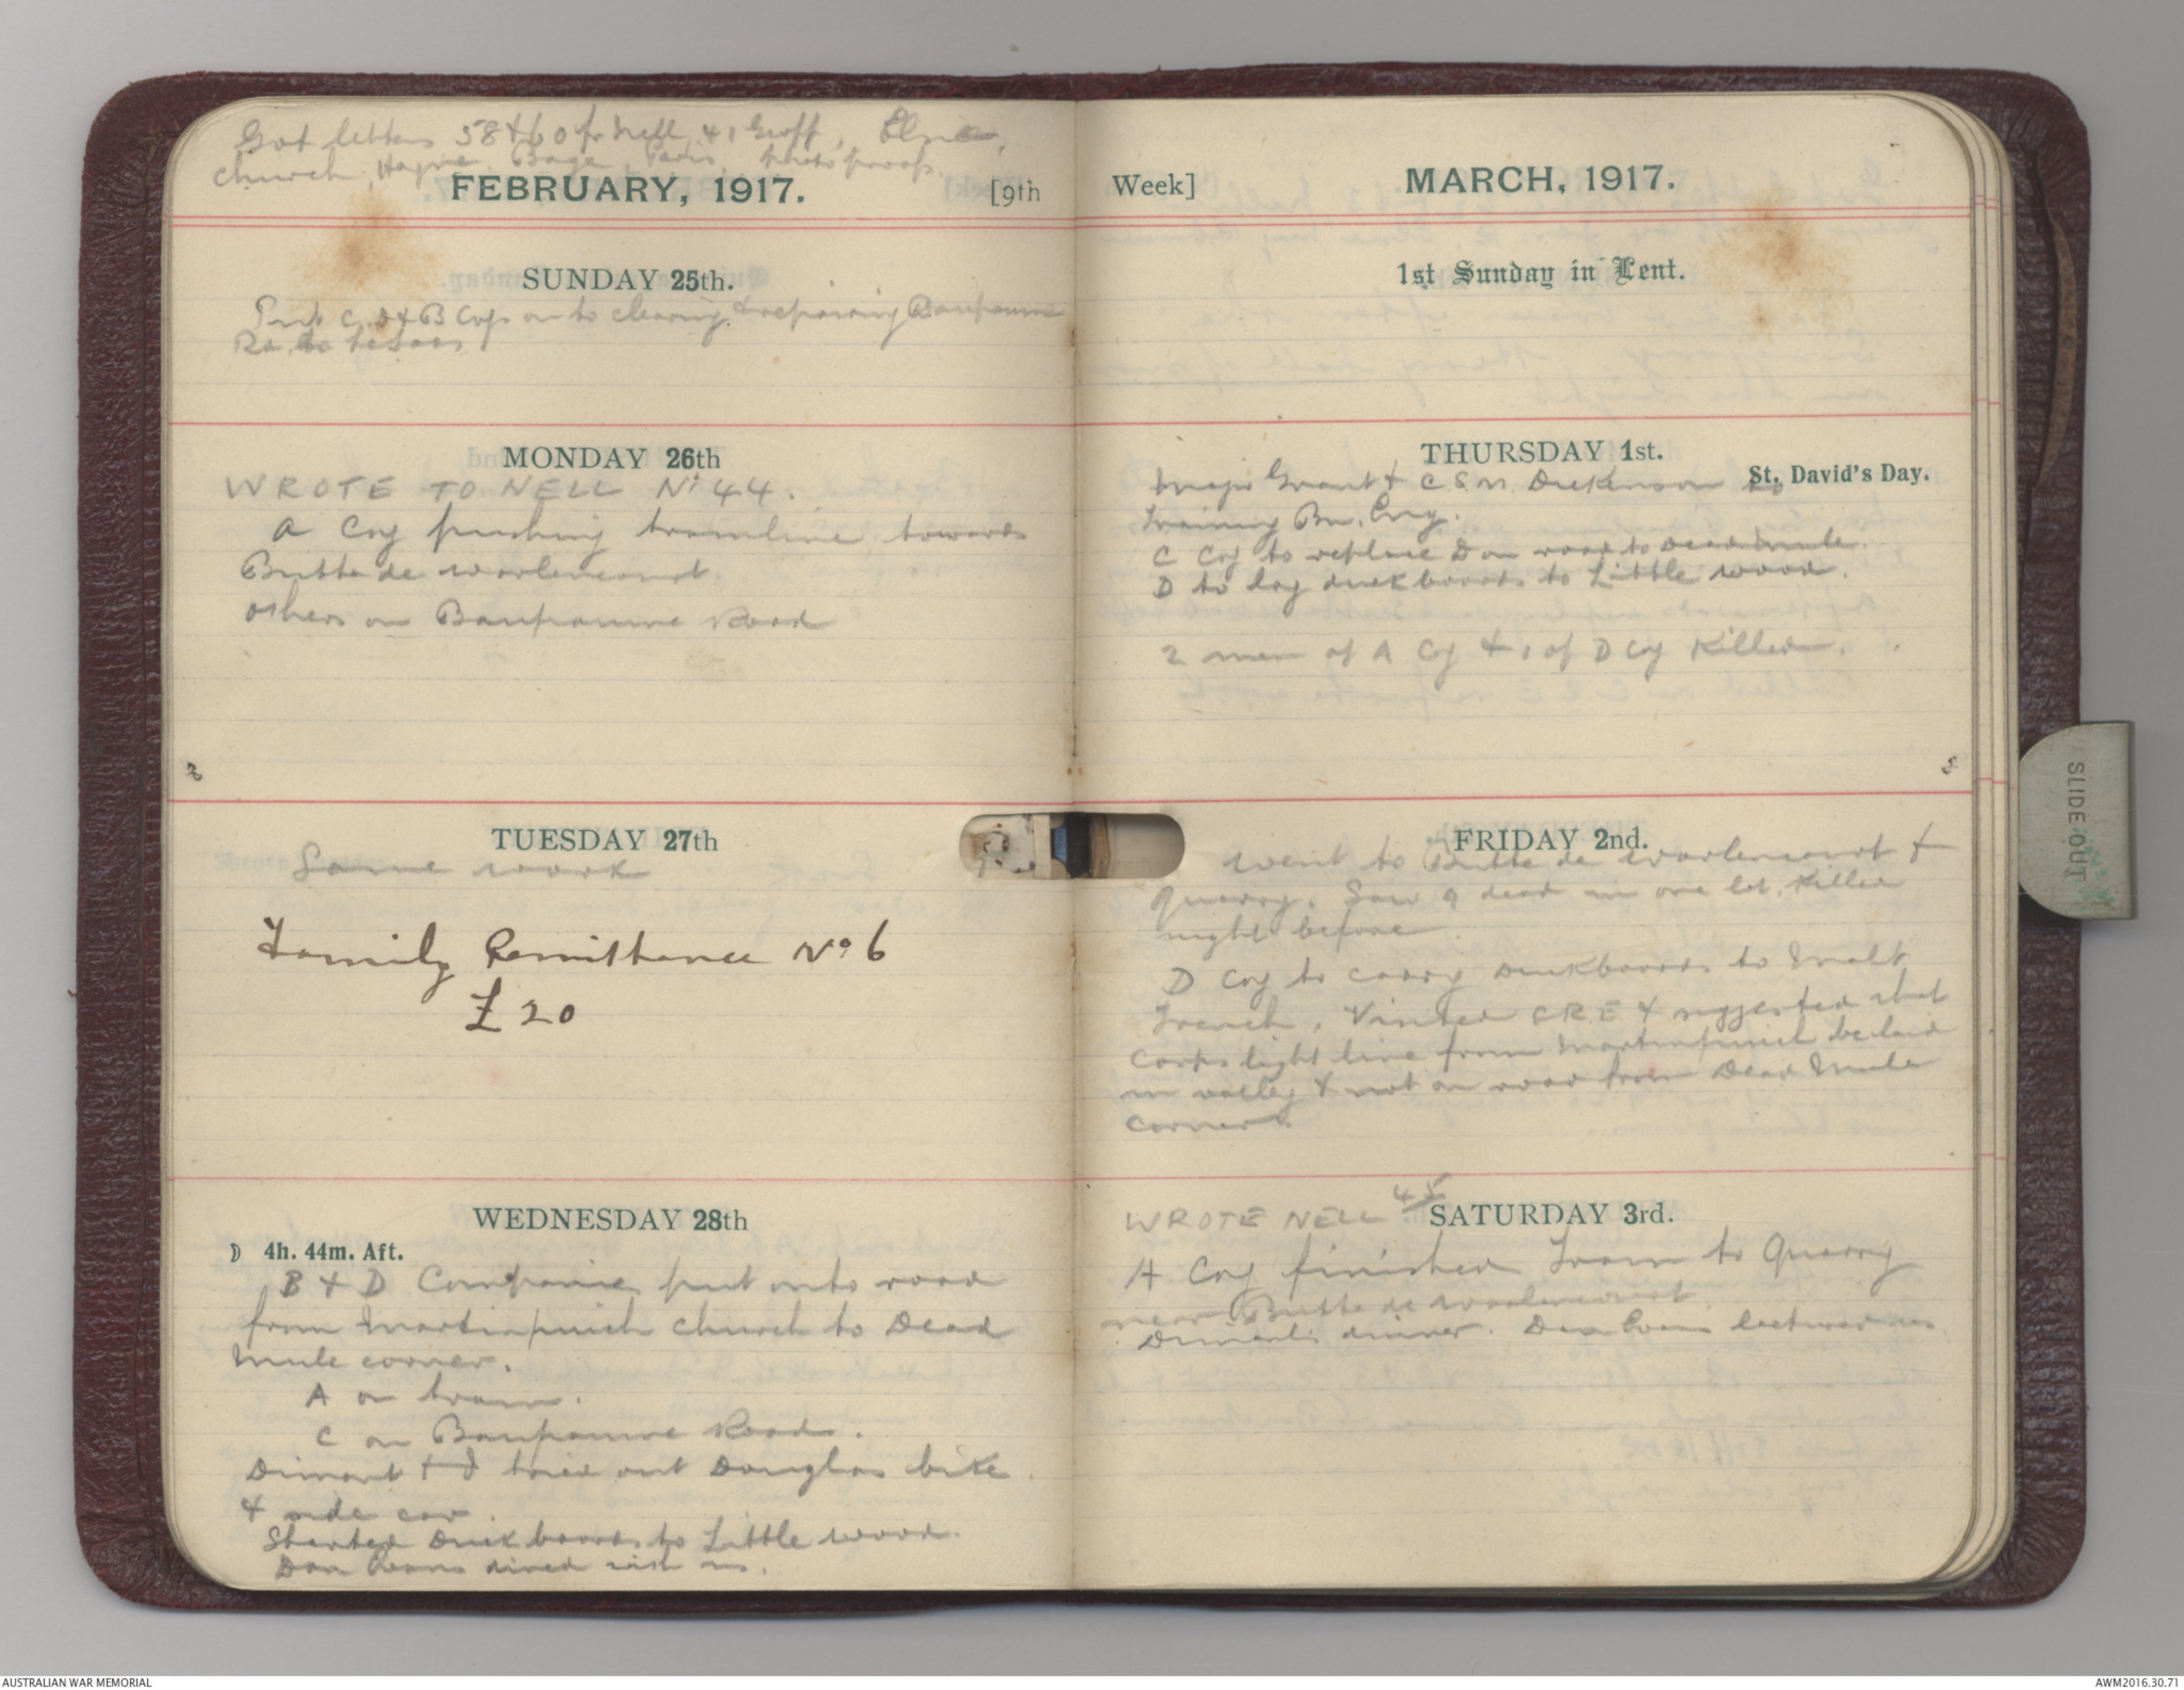 Got letters 58 & 60 fr Nell, 41 Geoff, Elsie,
church, Hagire, Bage, Paris, photo proofs.
FEBRUARY, 1917. [9th
SUNDAY 25th.
Put C, D & B Coys on to clearing & repairing Bapaume
Rd, Le
MONDAY 26th
WROTE TO NELL No 44.
A Coy pushing tramline towards
Butte de Warlencourt
others on Bapaume Road
TUESDAY 27th
Same work
Family Remittance No 6
£20
WEDNESDAY 28th
☽ 4h. 44m. Aft.
B & D Companies put onto road
from Martinpuich church to Dead
Mule corner.
A on tram.
C on Bapaume Road.
Dimant & I tried out Douglas bike
& side car.
Started Duck boards to Little wood.
Dan Evans dined with us.
Week] MARCH, 1917.
1st Sunday in Lent.
THURSDAY 1st.
St. David's Day.
Major Grant & C.S.M. Dickenson to
Training Bn, Eng.
C Coy to replace D on road to Dead Mule.
D to lay duckboards to Little wood.
2 men of A Coy & 1 of D Coy Killed.
FRIDAY 2nd.
Went to Butte de Warlencourt &
quarry. Saw 9 dead in one lot, Killed
night before
D Coy to carry Duckboards to Malt
Trench. Visited CRE & suggested that
Corps light line from Martinpuich be laid
in valley & not on road from Dead Mule
corner.
SATURDAY 3rd.
WROTE NELL 45
A Coy finished Tram to Quarry
near Butte de Warlencourt.
Dimant's dinner. Dan Evans lectured us.
SLIDE OUT
AUSTRALIAN WAR MEMORIAL
AWM2016.30.71